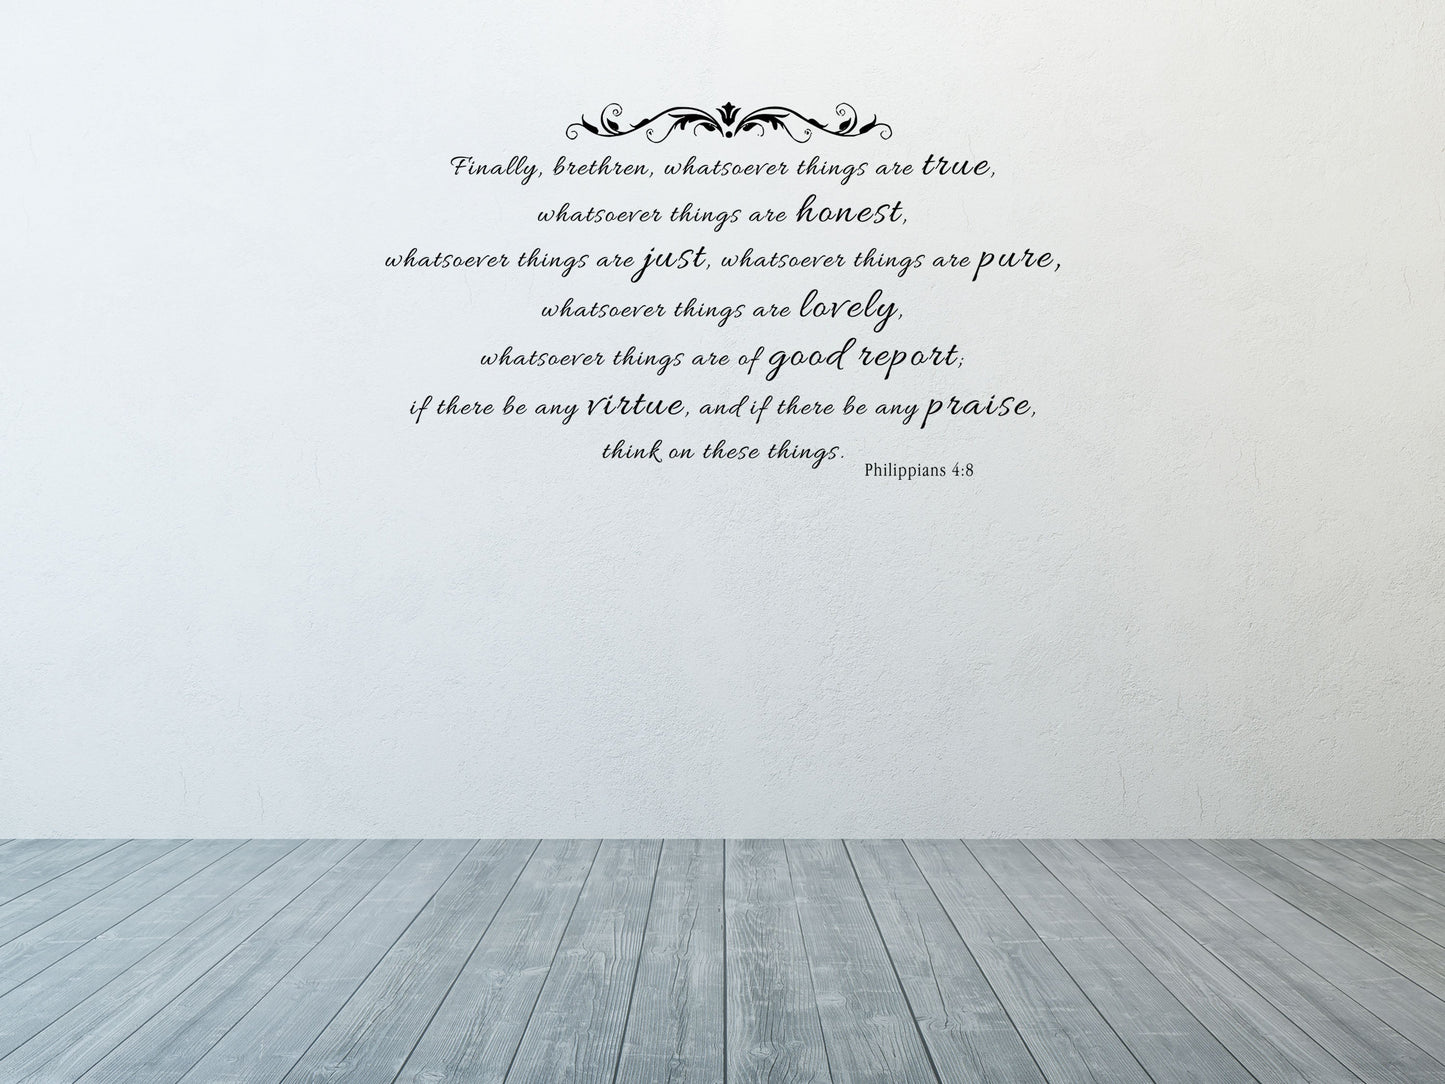 Finally, brethren, whatsoever things are true,
whatsoever things are honest,
whatsoever things are just, whatsoever things are pure,
whatsoever things are lovely,
whatsoever things are of good report;
if there be any virtue, and if there be any praise,
think on these things.
Philippians 4:8